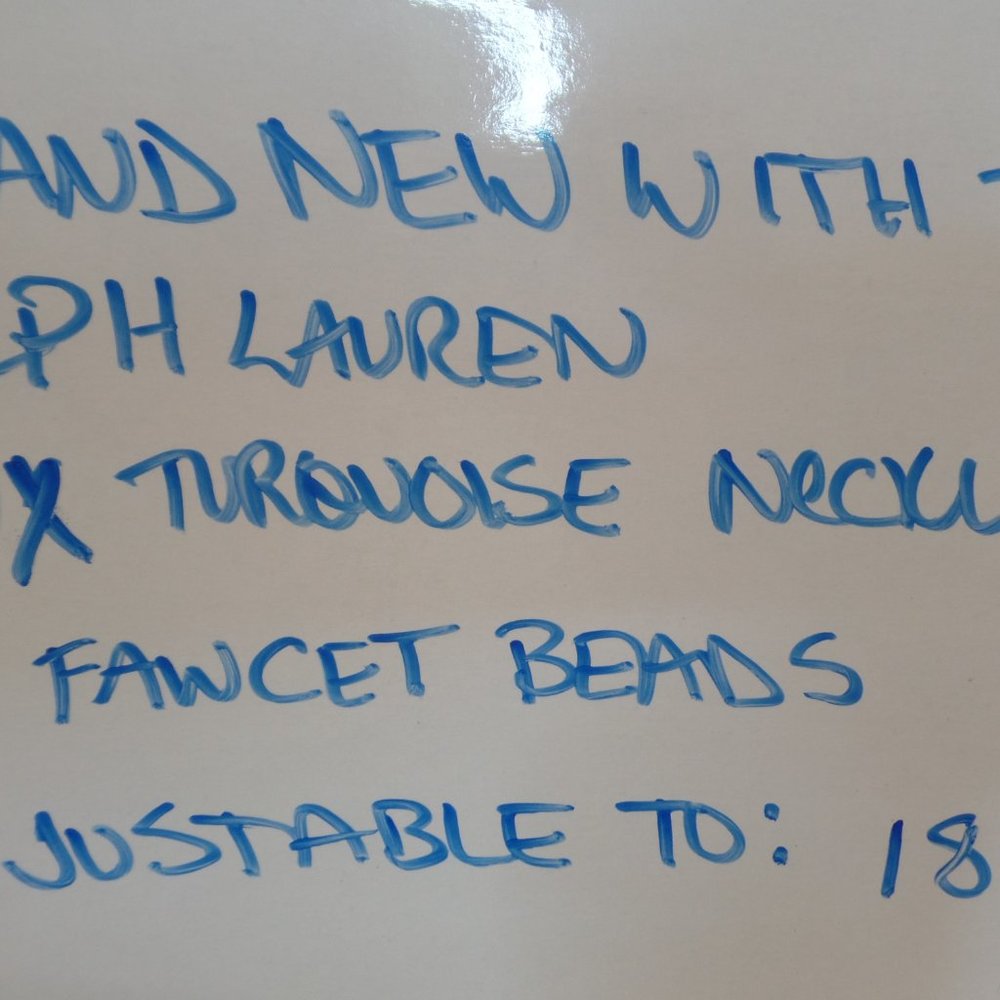 AND NEW WITH T
LPH LAUREN
X TURQUOISE NECKL
FAWCET BEADS
JUSTABLE TO: 18